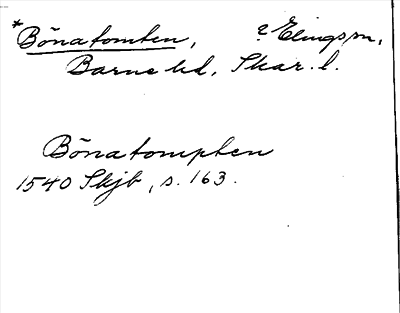 *Bönatomten, ? Elingsm,
Barne hd, Skar. l.
Bönatompten
1540 Skjb, s. 163.